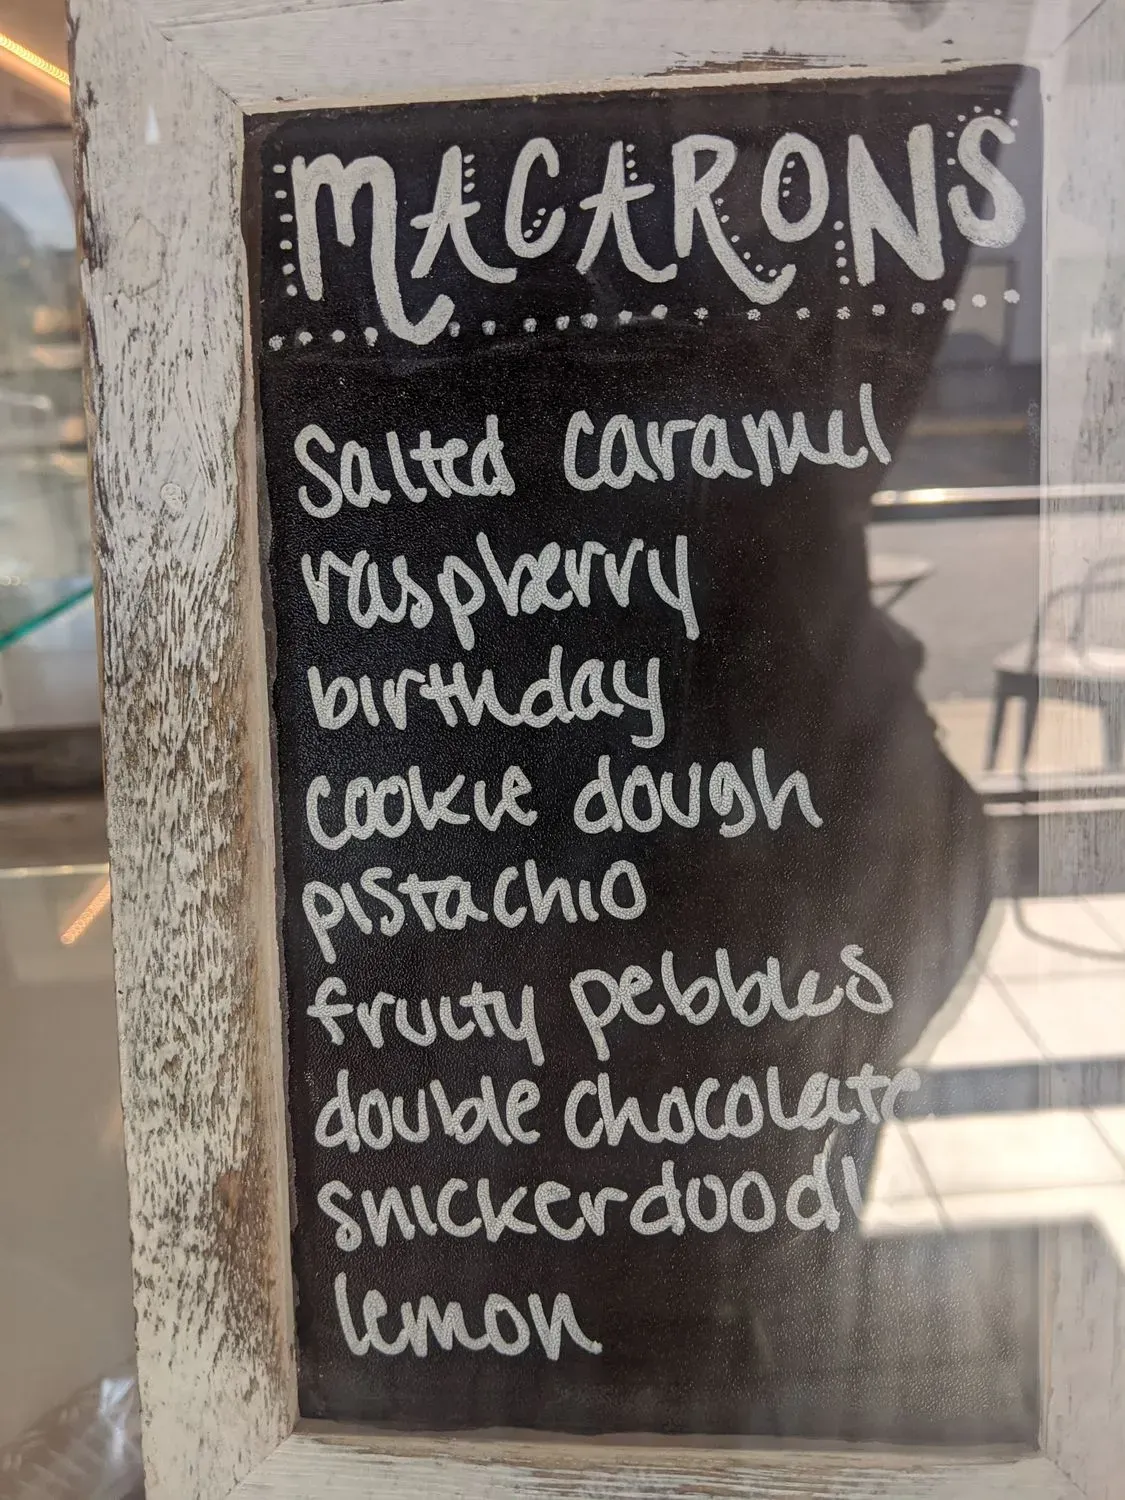 MACARONS
Salted caramel
raspberry
birthday
cookie dough
pistachio
fruity pebbles
double chocolate
snickerdoodl
lemon